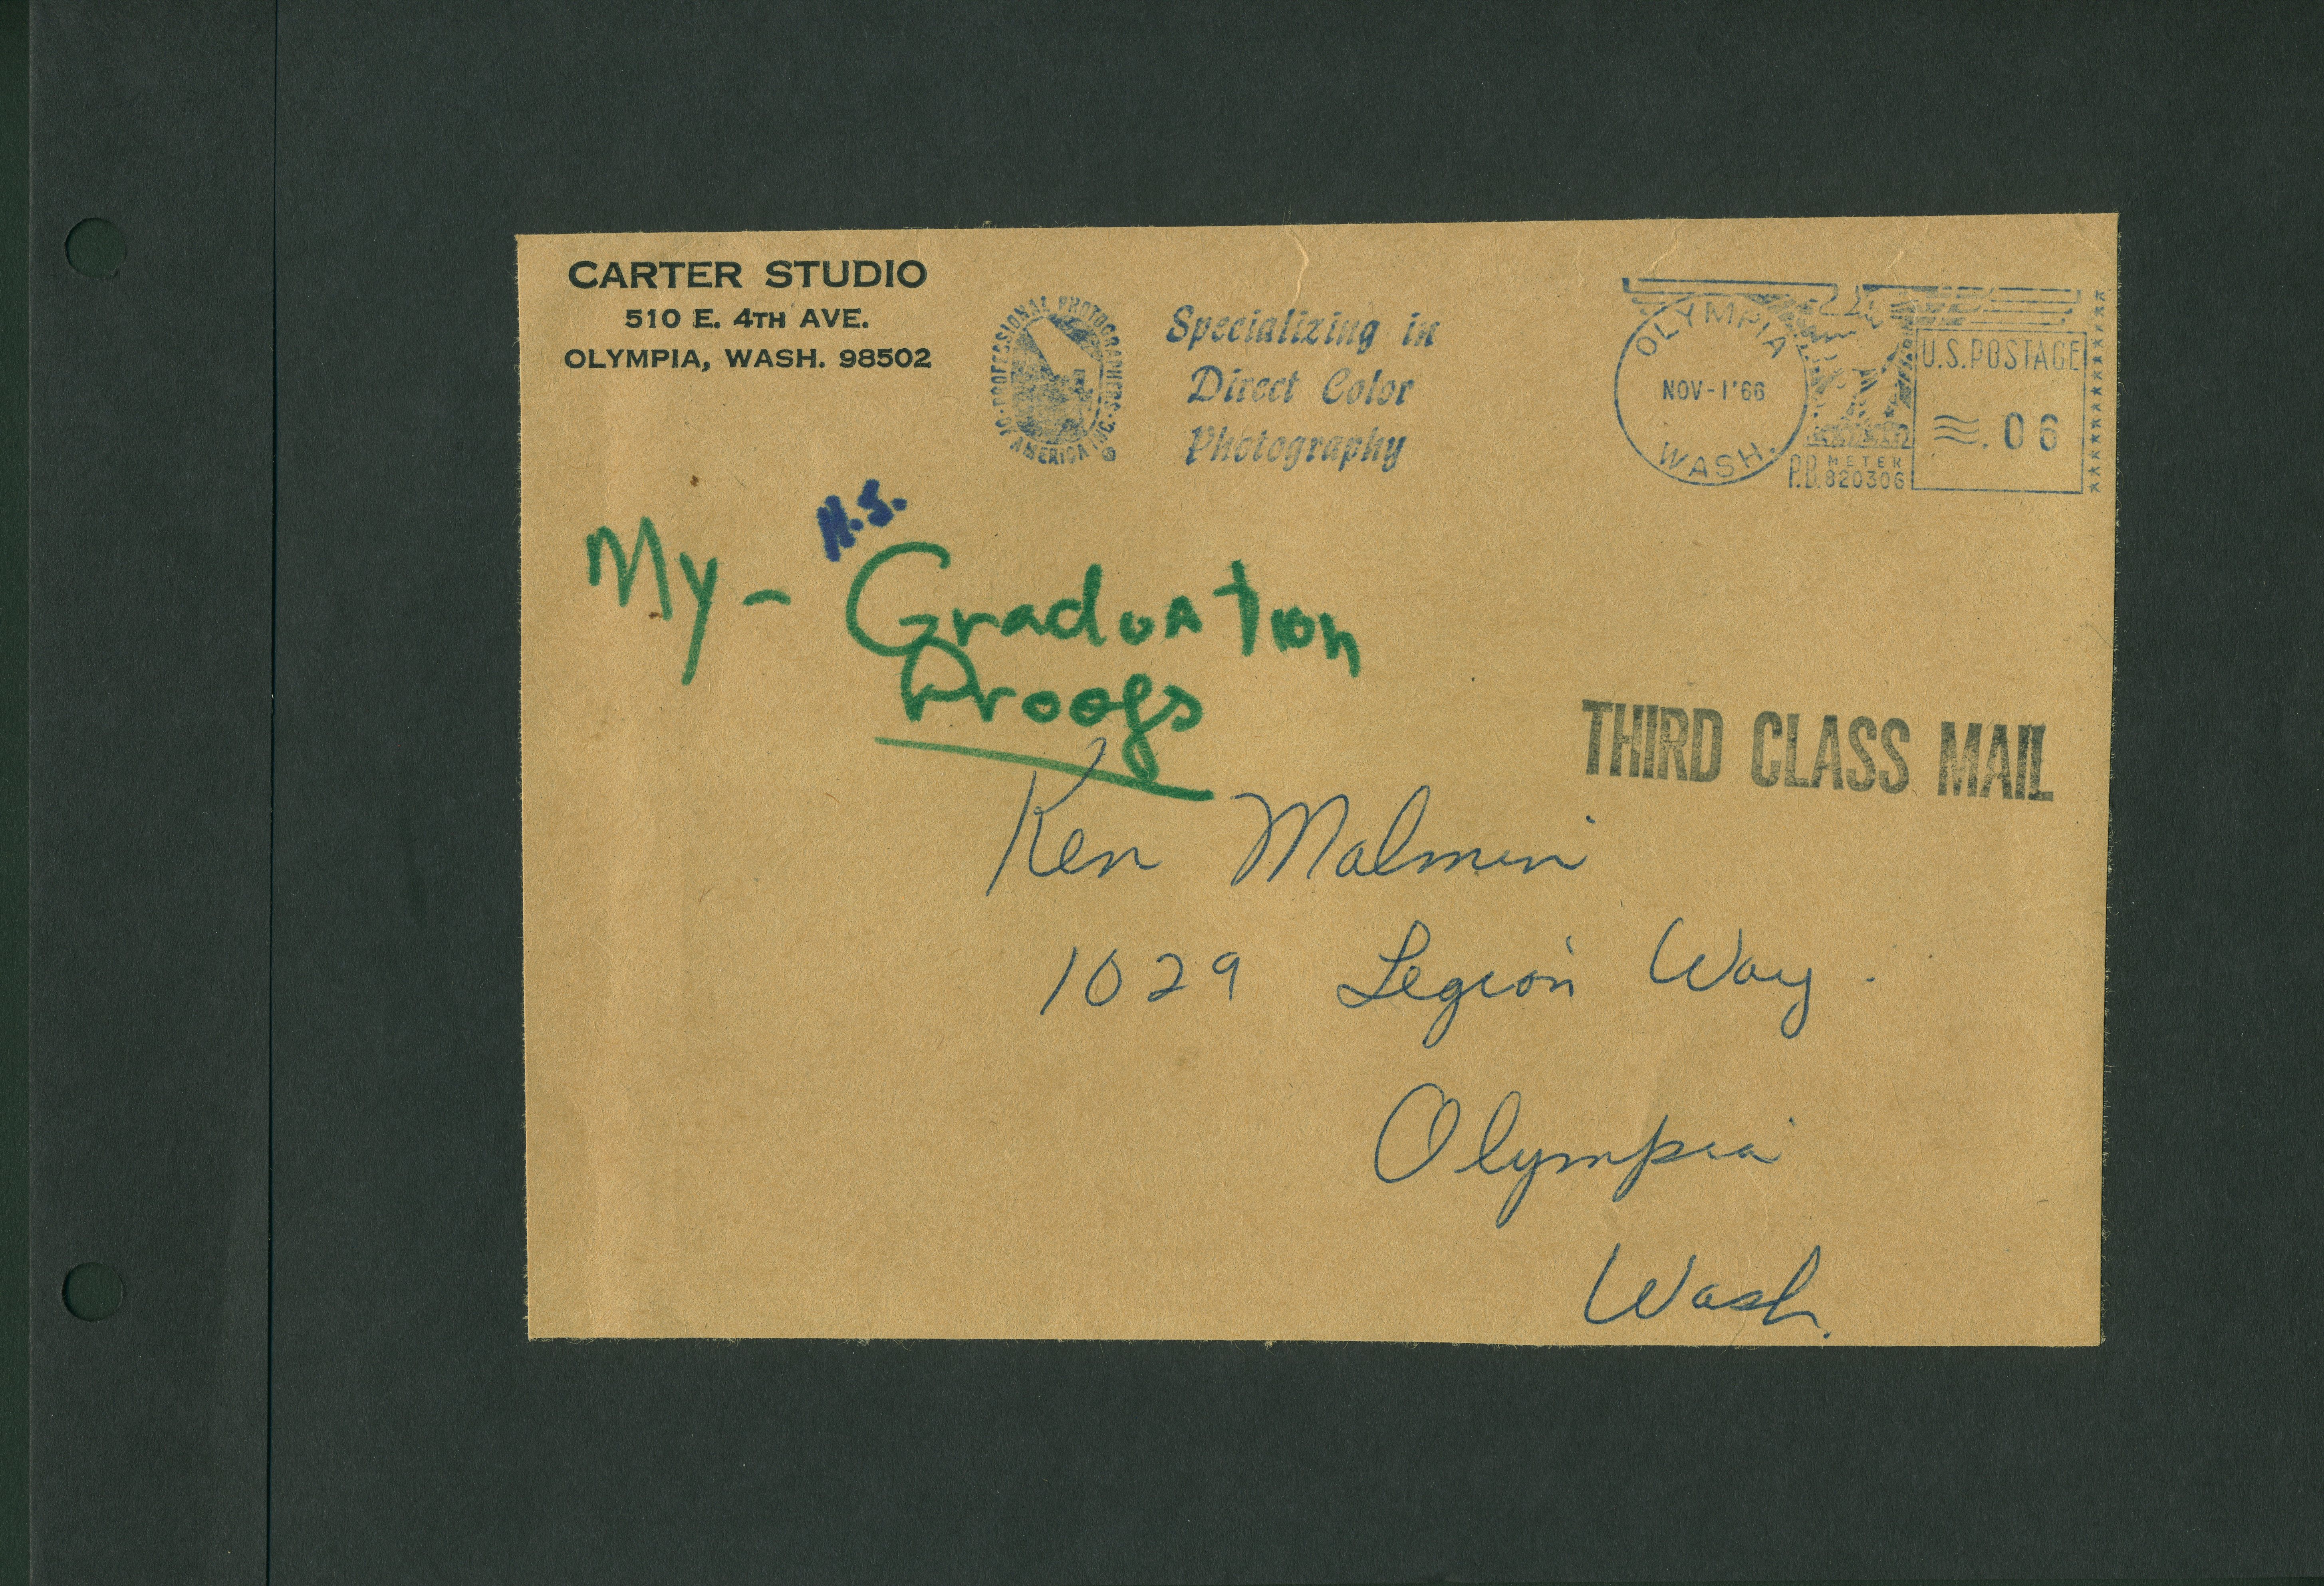 CARTER STUDIO
510 E. 4TH AVE.
OLYMPIA, WASH. 98502
PROFESSIONAL PHOTOGRAPHERS OF AMERICA INC.
Specializing in
Direct Color
Photography
OLYMPIA
NOV-1'66
WASH.
P.B. METER
820306
U.S. POSTAGE
.06
H.S.
My - Graduation
Proofs
THIRD CLASS MAIL
Ken Malmin
1029 Legion Way.
Olympia
Wash.